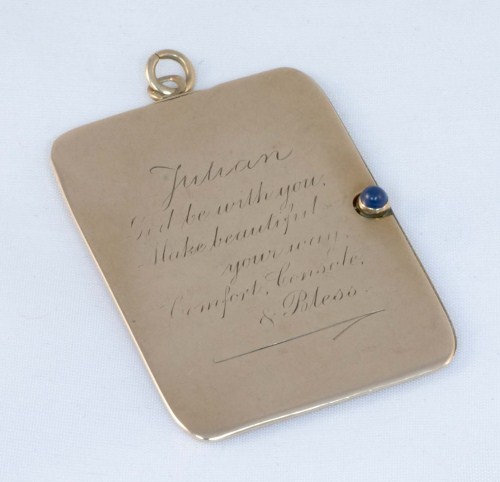 Julian
God be with you,
Make beautiful
your way,
Comfort, Console,
& Bless.